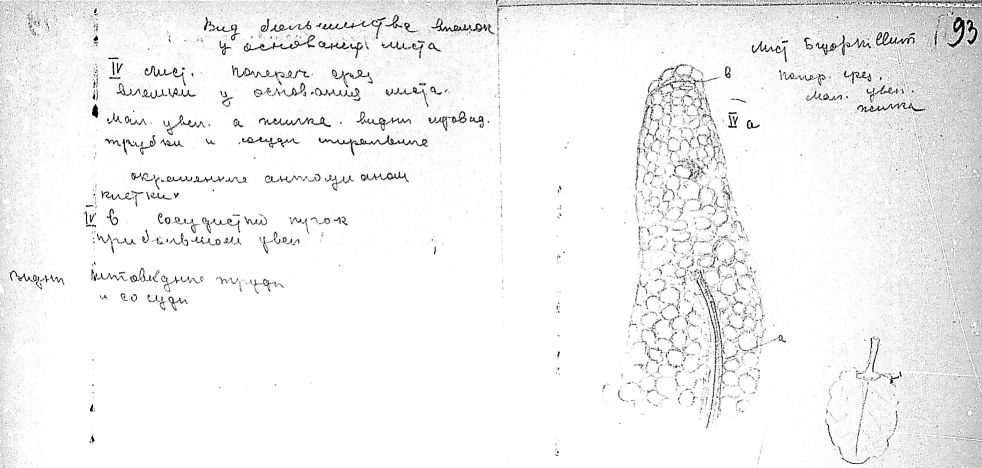 Вид большинства выемок
у основания листа
IV Лист. Попереч. срез
выемки у основания листа.
мал. увел. а жилка. видны ситовид.
трубки и сосуды спиральные
окрашенные антоцианом
клетки
IV в сосудистый пучок
при большом увел.
видны ситовидные труды
и сосуды
93
Лист Бриофиллит
попер. срез.
мал. увел.
жилка
в
IV а
а